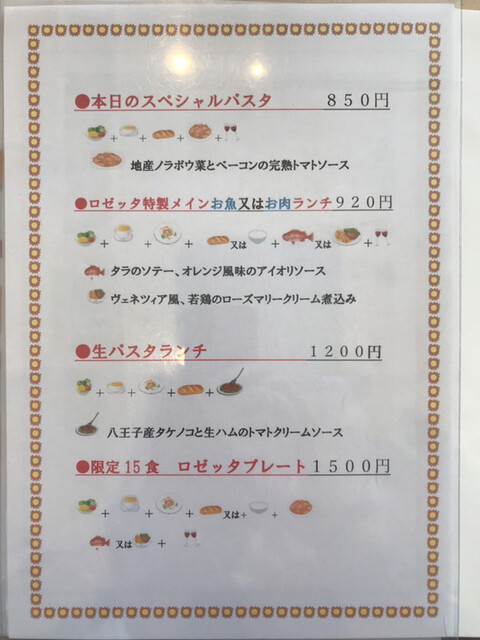 ●本日のスペシャルパスタ 850円
+ + + +
地産ノラボウ菜とベーコンの完熟トマトソース
●ロゼッタ特製メインお魚又はお肉ランチ920円
+ + + 又は + 又は +
タラのソテー、オレンジ風味のアイオリソース
ヴェネツィア風、若鶏のローズマリークリーム煮込み
●生パスタランチ 1200円
+ + + +
八王子産タケノコと生ハムのトマトクリームソース
●限定15食 ロゼッタプレート1500円
+ + + 又は+ +
又は +